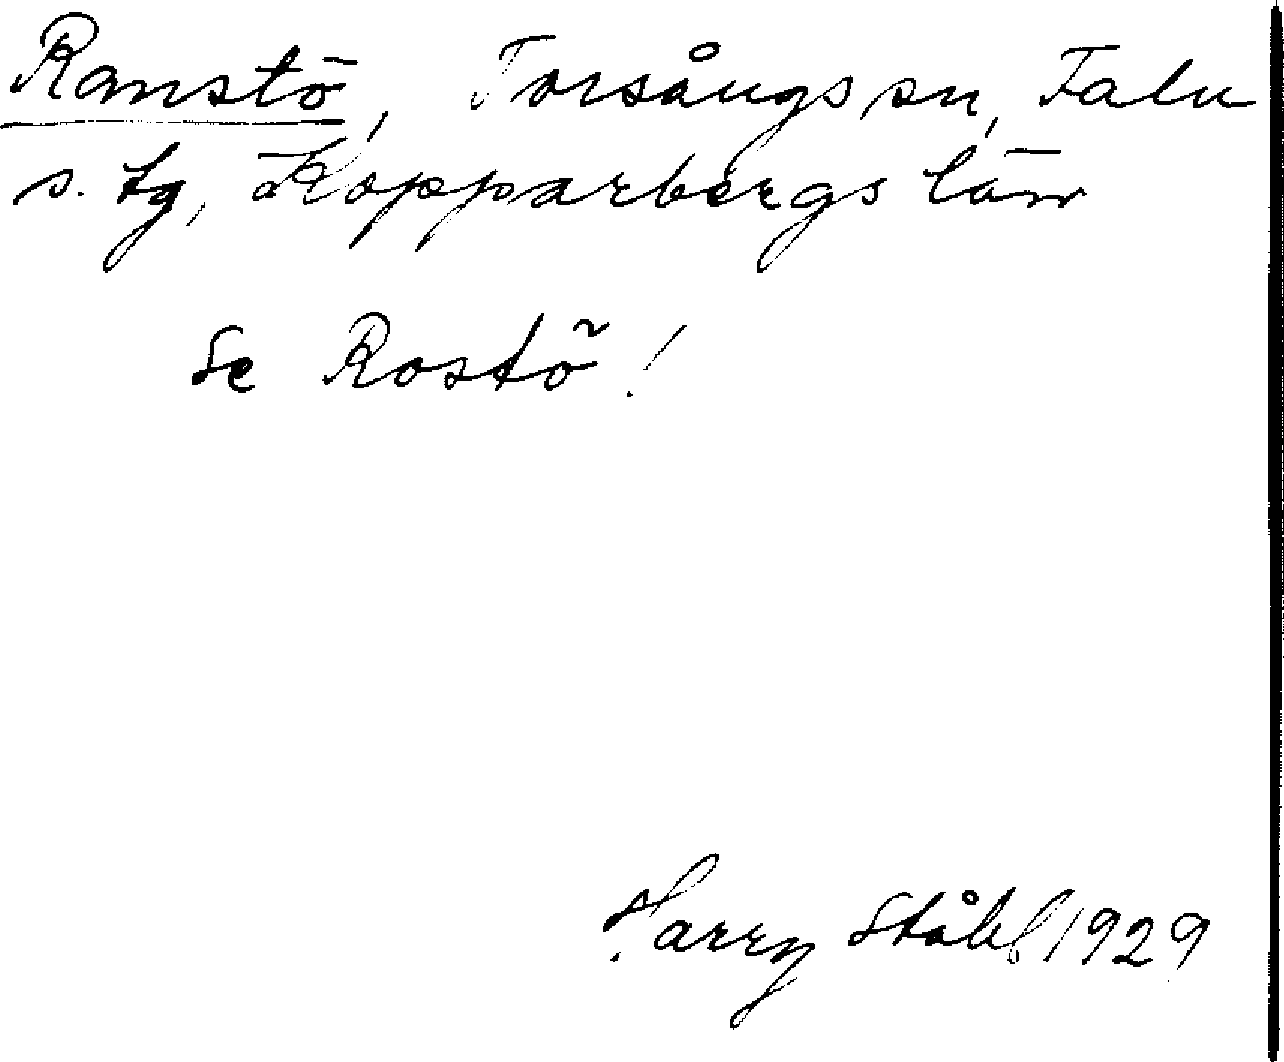 Ranstö, Torsångs sn, Falu
s. tg, Kopparbergs län
Se Rostö!
Harry Ståhl 1929